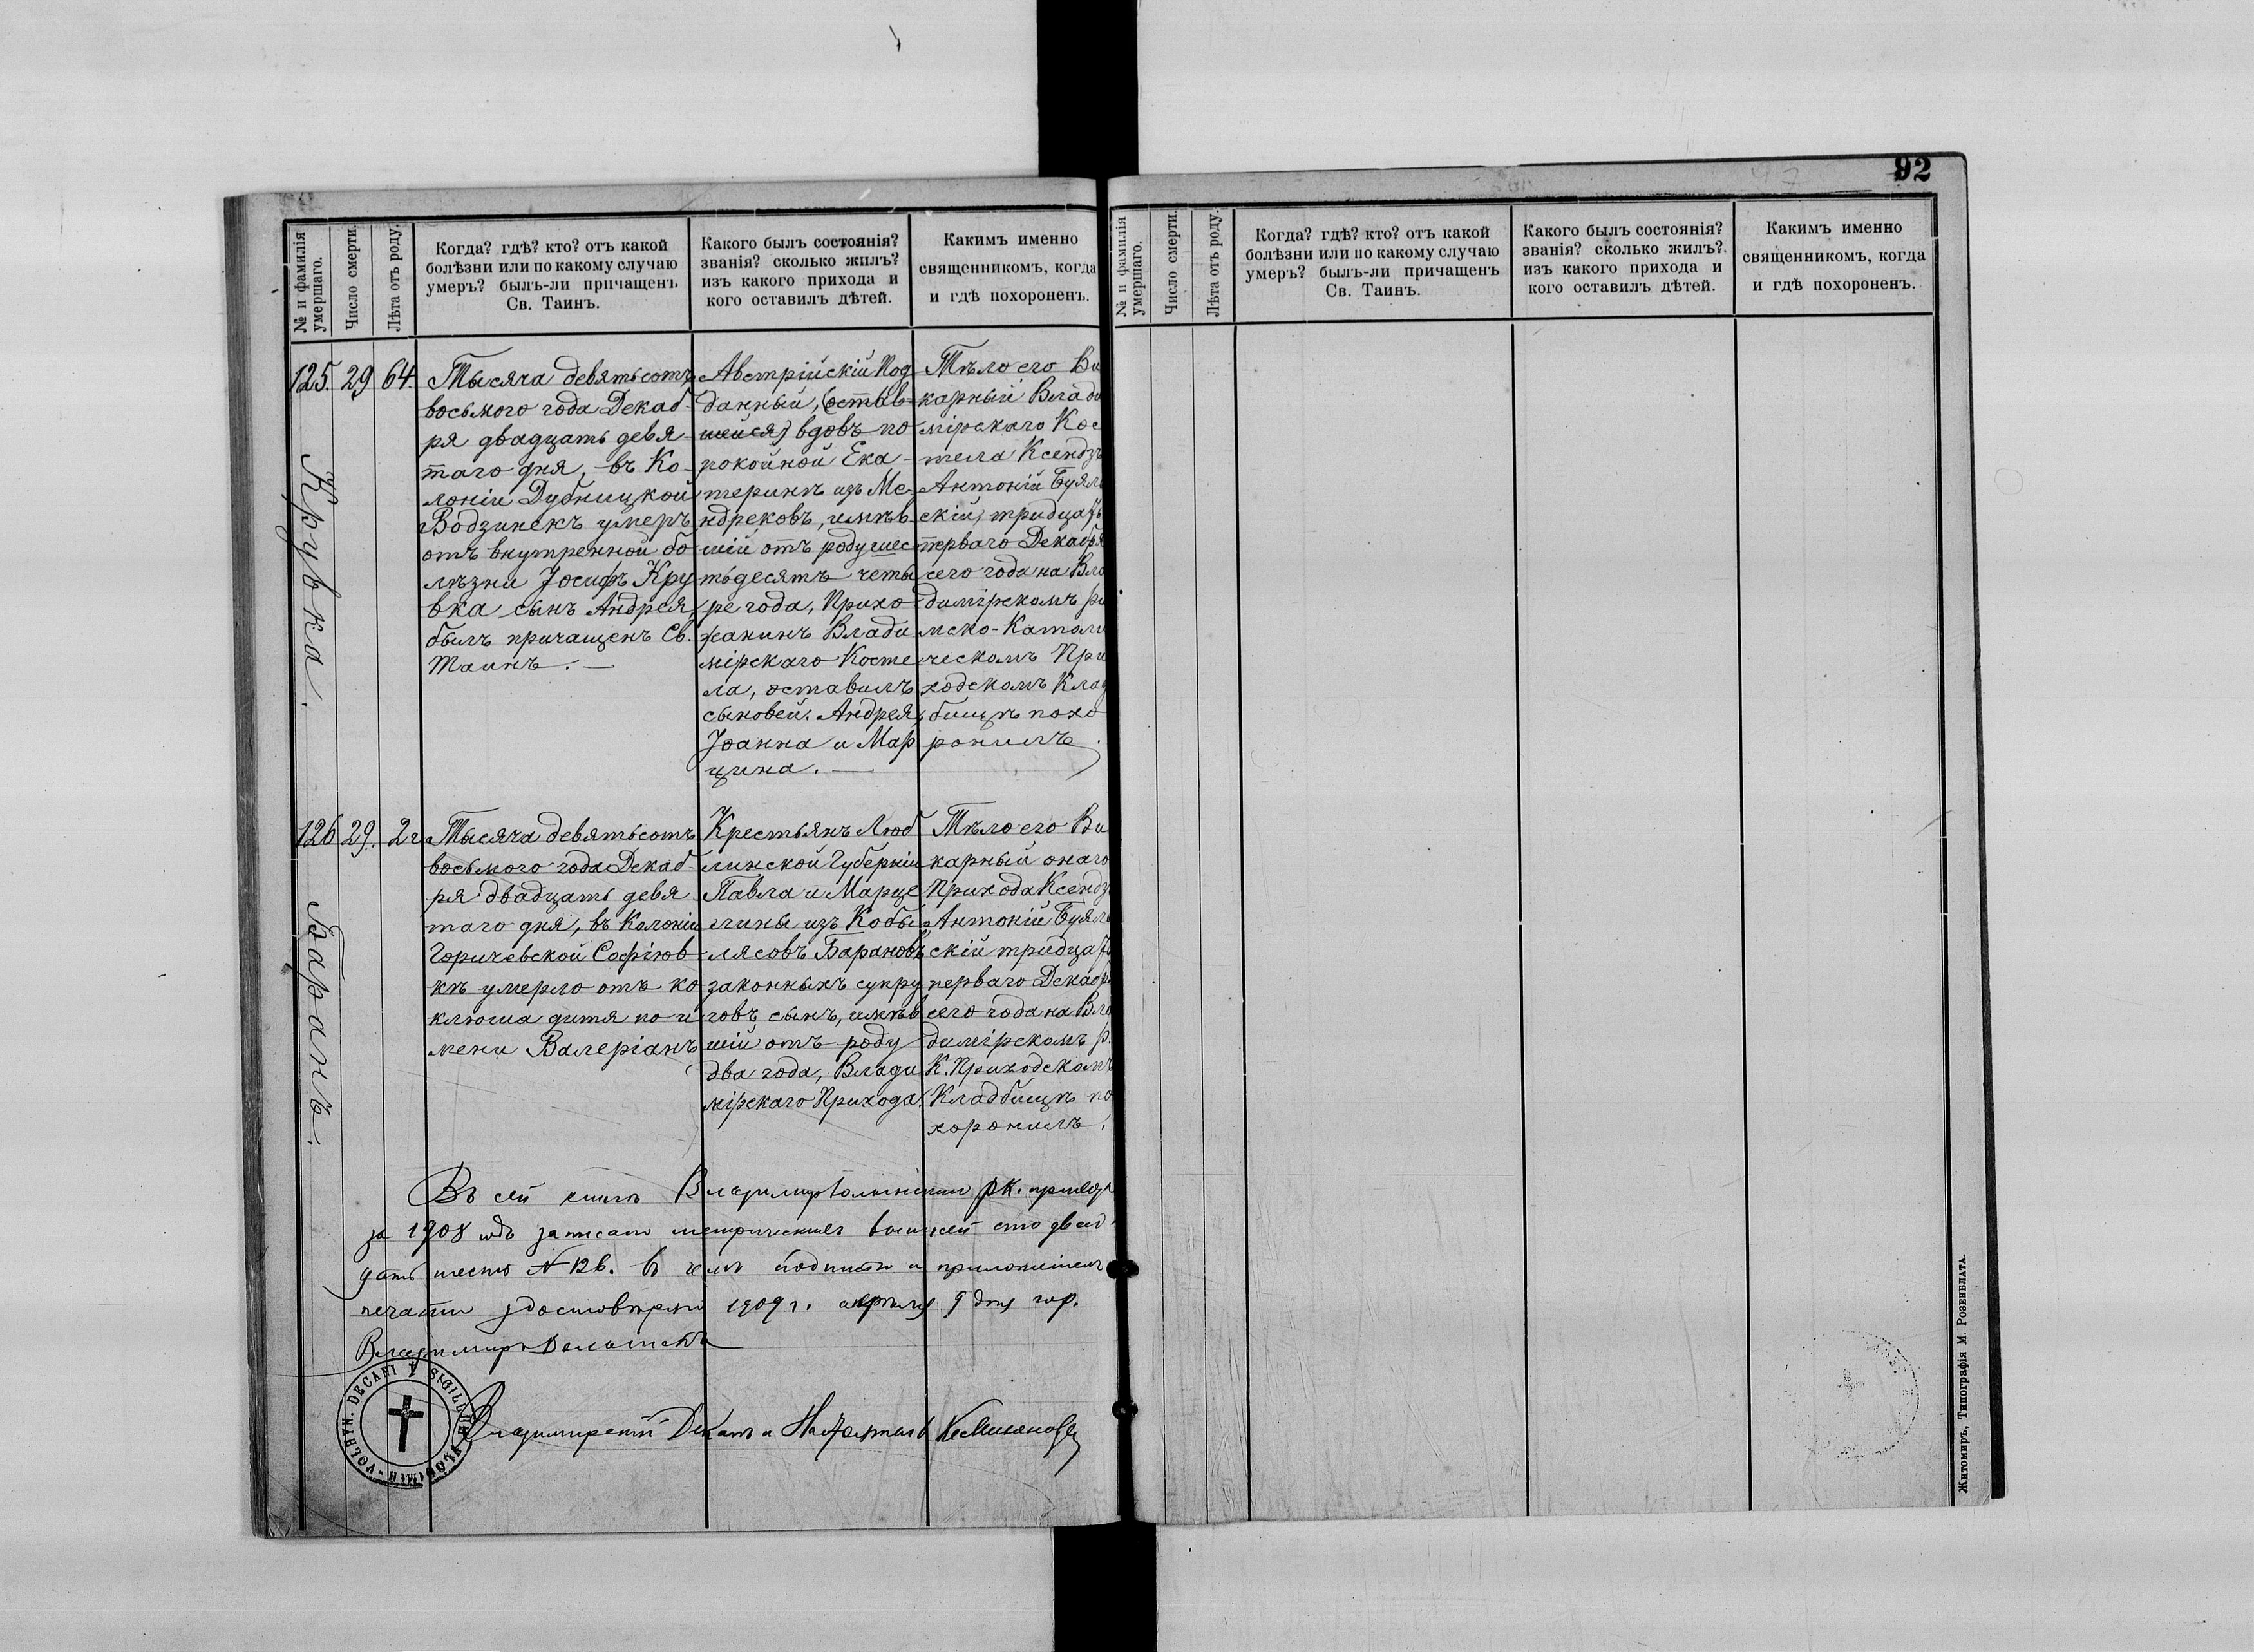 92
№ и фамилія умершаго.
Число смерти.
Лѣта отъ роду.
Когда? гдѣ? кто? отъ какой
болѣзни или по какому случаю
умеръ? былъ-ли причащенъ
Св. Таинъ.
Какого былъ состоянія?
званія? сколько жилъ?
изъ какого прихода и
кого оставилъ дѣтей.
Какимъ именно
священникомъ, когда
и гдѣ похороненъ.
125.
29
64.
Крувка.
Тысяча девятьсотъ
восьмого года Декаб-
ря двадцать девя-
таго дня, въ Ко-
лоніи Дубницкой
Водзинекъ умеръ
отъ внутренной бо
лѣзни Іосифъ Кру
вка сынъ Андрея,
былъ причащенъ Св.
Таинъ.—
Австрійскій Под
данный, (остав-
шейся) вдовъ по
покойной Ека-
теринѣ изъ Ме-
ндрековъ, имѣв
шій отъ роду шес
тьдесятъ четы
ре года, Прихо-
жанинъ Влади
мірскаго Косте
ла, оставилъ
сыновей: Андрея,
Іоанна и Мар
цина.—
Тѣло его Ви
карный Влади
мірскаго Кос
тела Ксендзъ
Антоній Буял
скій, тридцать
перваго Декабря
сего года на Вла
димірскомъ ри
мско-Католи
ческомъ При
ходскомъ Клад
бищѣ похо
ронилъ.
126
29.
2 г.
Баранъ.
Тысяча девятьсотъ
восьмого года Декаб-
ря двадцать девя
таго дня, въ Колоніи
Горичевской Софіюв-
кѣ умерло отъ ко
клюша дитя по и
мени Валеріанъ
Крестьянъ Люб
линской Губерніи
Павла и Марце
лины изъ Кобы
лясовъ Барановъ
законныхъ супру
говъ сынъ, имѣв
шій отъ роду
два года, Влади
мірскаго Прихода.
Тѣло его Ви
карный онаго
Прихода Ксендз
Антоній Буяль
скій тридцать
перваго Декабр.
сего года на Вла
димірскомъ р.
К. Приходскомъ
Кладбищѣ по
хоронилъ.
Въ сей книгѣ Владимірволынскаго р.к. прихода
за 1908 годъ записано метрическихъ сто двад-
цать шесть № 126. въ чемъ подписью и приложеніемъ
печати удостовѣряю 1909 г. апрѣля 9 дня гор.
Владиміръ Волынскъ
Владимірскій Деканъ и Настоятель
SIGILLUM VLODIMIR-VOLHYN. DECANI
№ и фамилія умершаго.
Число смерти.
Лѣта отъ роду.
Когда? гдѣ? кто? отъ какой
болѣзни или по какому случаю
умеръ? былъ-ли причащенъ
Св. Таинъ.
Какого былъ состоянія?
званія? сколько жилъ?
изъ какого прихода и
кого оставилъ дѣтей.
Какимъ именно
священникомъ, когда
и гдѣ похороненъ.
Житомиръ, Типографія М. Розенблата.